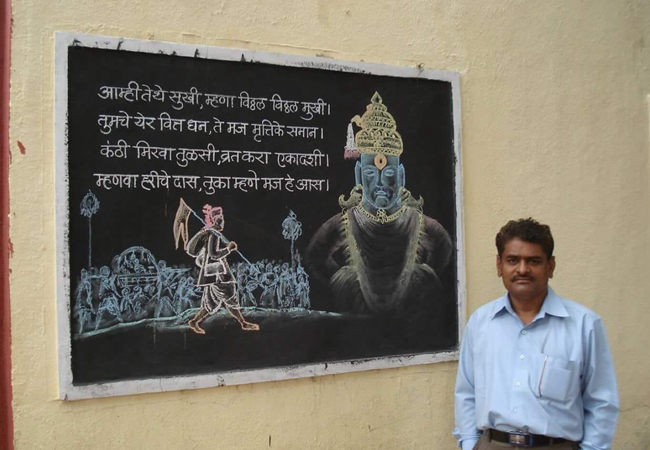 आम्ही तेथे सुखी, म्हणा विठ्ठल विठ्ठल मुखी।
तुमचे येर वित्त धन, ते मज मृत्तिके समान।
कंठी मिरवा तुळसी, व्रत करा एकादशी।
म्हणवा हरीचे दास, तुका म्हणे मज हे आस।